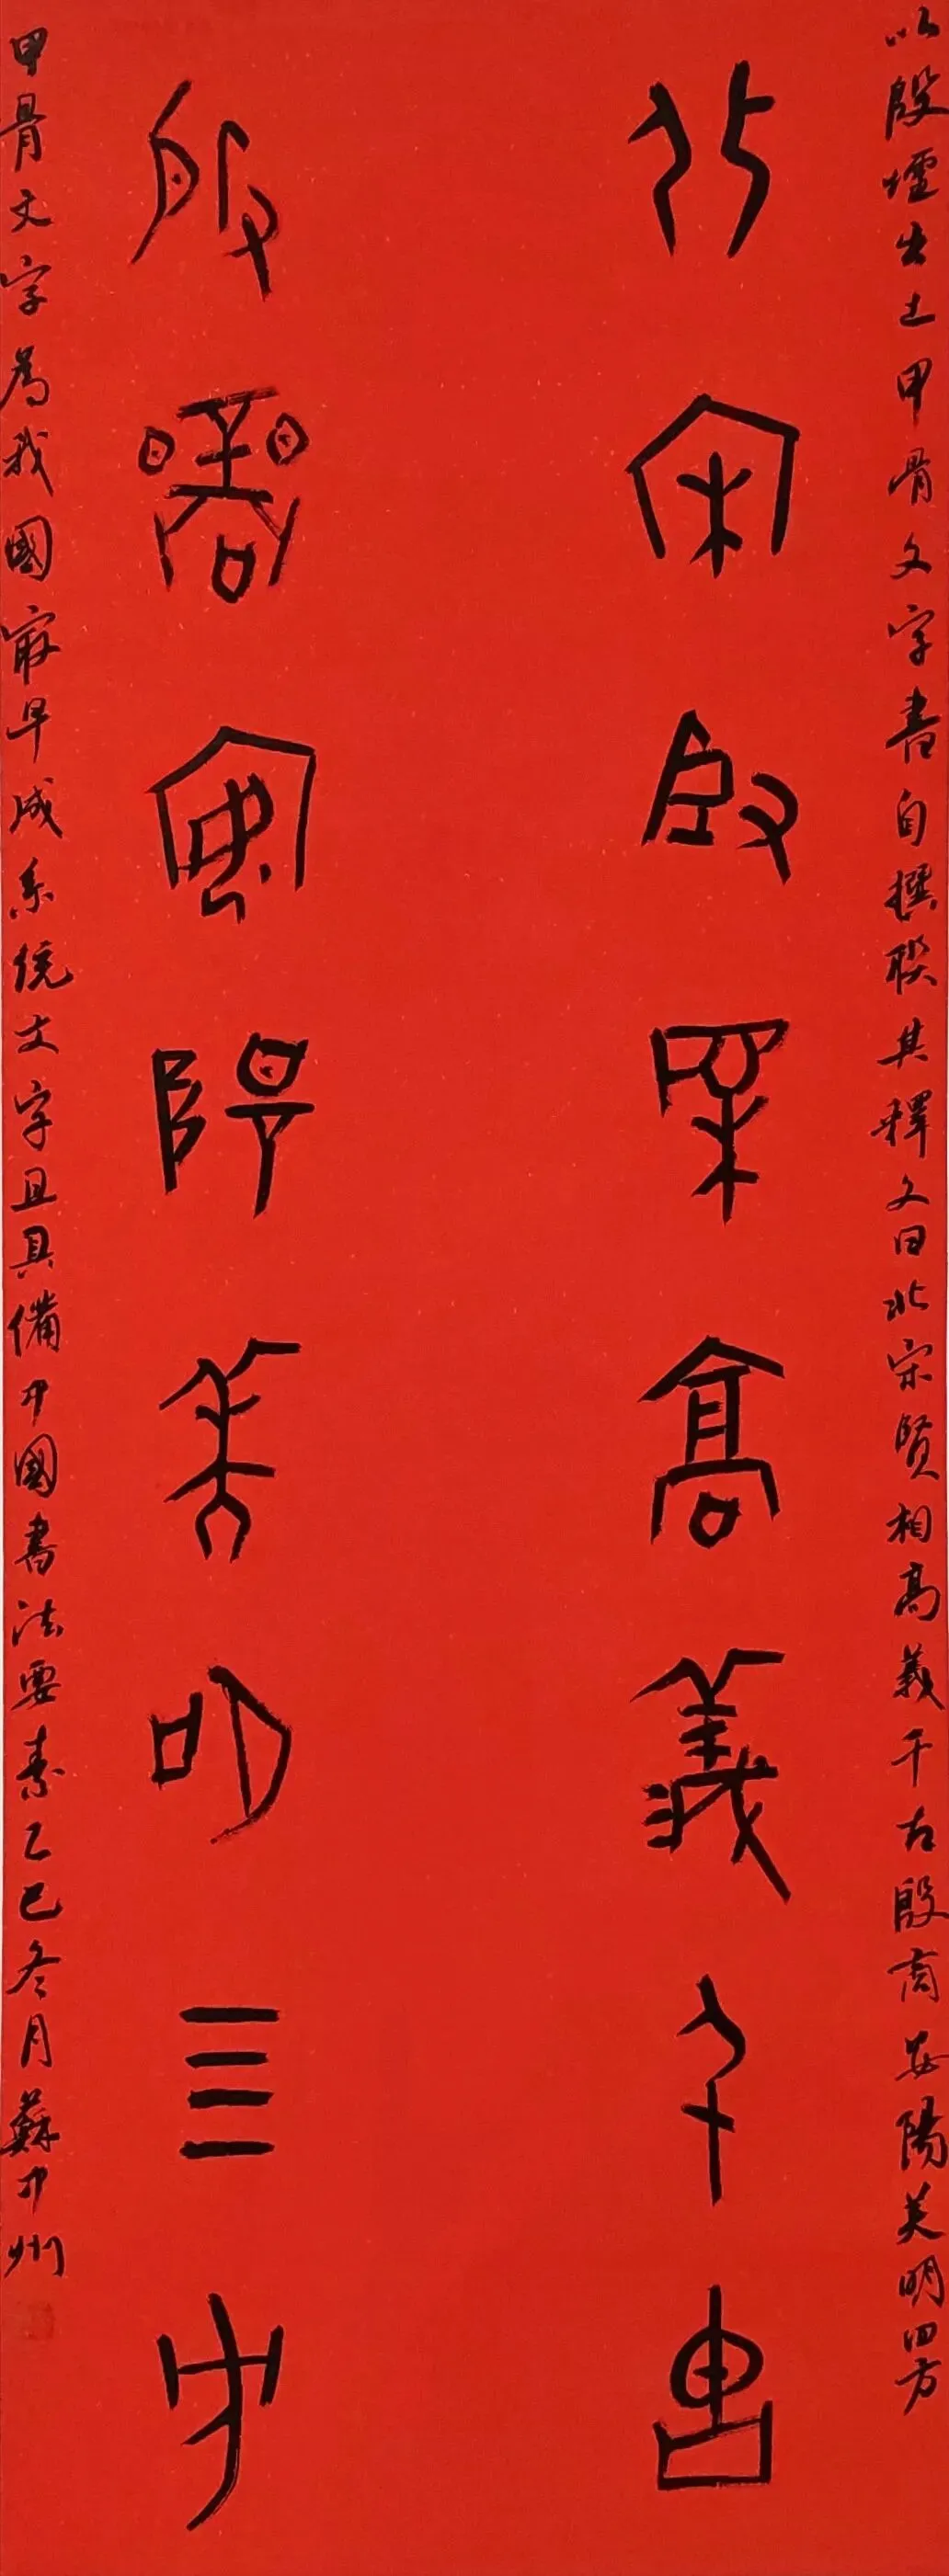 以殷墟出土甲骨文字書自撰联其釋文曰北宋賢相高義千古殷商安陽美明四方
北宋賢相高義千古
殷商安陽美明四方
甲骨文字為我國最早成系统文字且具備中國書法要素乙巳冬月蘇中州